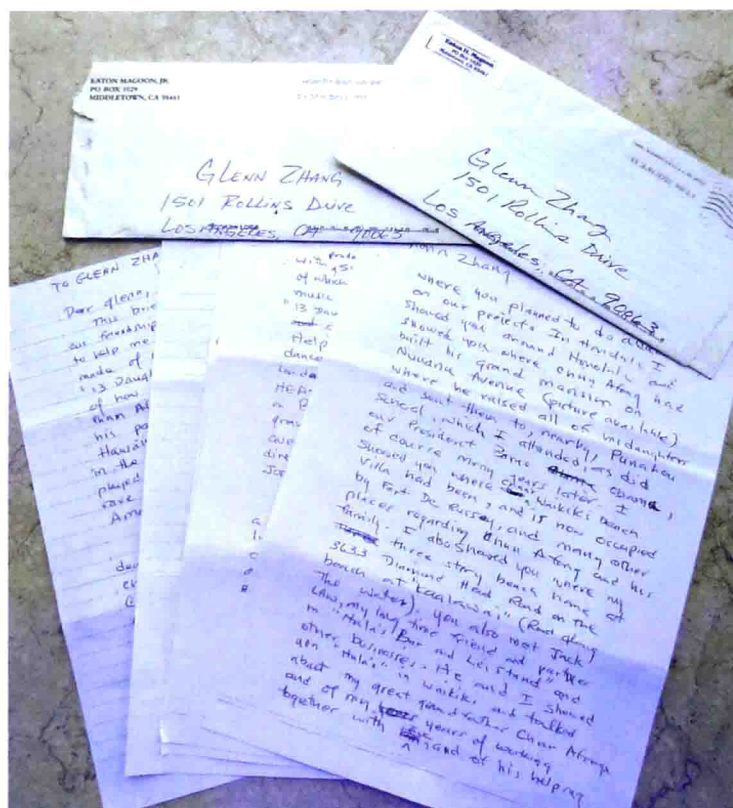 EATON MAGOON, JR.
PO BOX 1029
MIDDLETOWN, CA 95461
GLENN ZHANG
1501 ROLLINS DRIVE
LOS ANGELES, CA 90063
Eaton H. Magoon
PO Box 1029
Glenn Zhang
1501 Rollins Drive
Los Angeles, CA 90063
TO GLENN ZHA
Dear Glenn,
This brie
our friendship
to help me
made of
"13 Daugh
of how
Chun Af
his pa
Hawaii
in the
played
rare
Ame
with
of which
music
"13 Dau
Help
dance
dire
Zhang
where you planned to do a
on our projects. In Honolulu I
showed you around Honolulu and
showed you where Chun Afong had
built his grand mansion on
Nuuanu Avenue (picture available)
where he raised all of his daughters
and sent them to, nearby, Punahou
School, which I attended, as did
our President Obama,
of course many years later. I
showed you where Waikiki beach
Villa had been, and is now occupied
by Fort De Russey, and many other
places regarding Chun Afong and his
family. I also showed you where my
three story beach home at
3633 Diamond Head Road on the
beach at Kaalawai (Road along
the water). You also met Jack
Law, my long time friend and partner
in "Hula's Bar and Lei Stand" and
other businesses. He and I showed
you "Hula's" in Waikiki and talked
about my great grandfather Chun Afong
and of my years of working
together with and of his helping